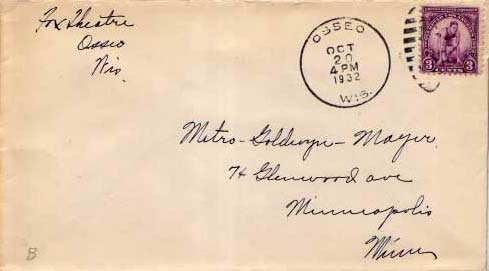 Fox Theatre
Osseo
Wis
OSSEO
OCT
20
4 PM
1932
WIS.
3 3
Metro-Goldwyn-Mayer
74 Glenwood ave
Minneapolis
Minn
B